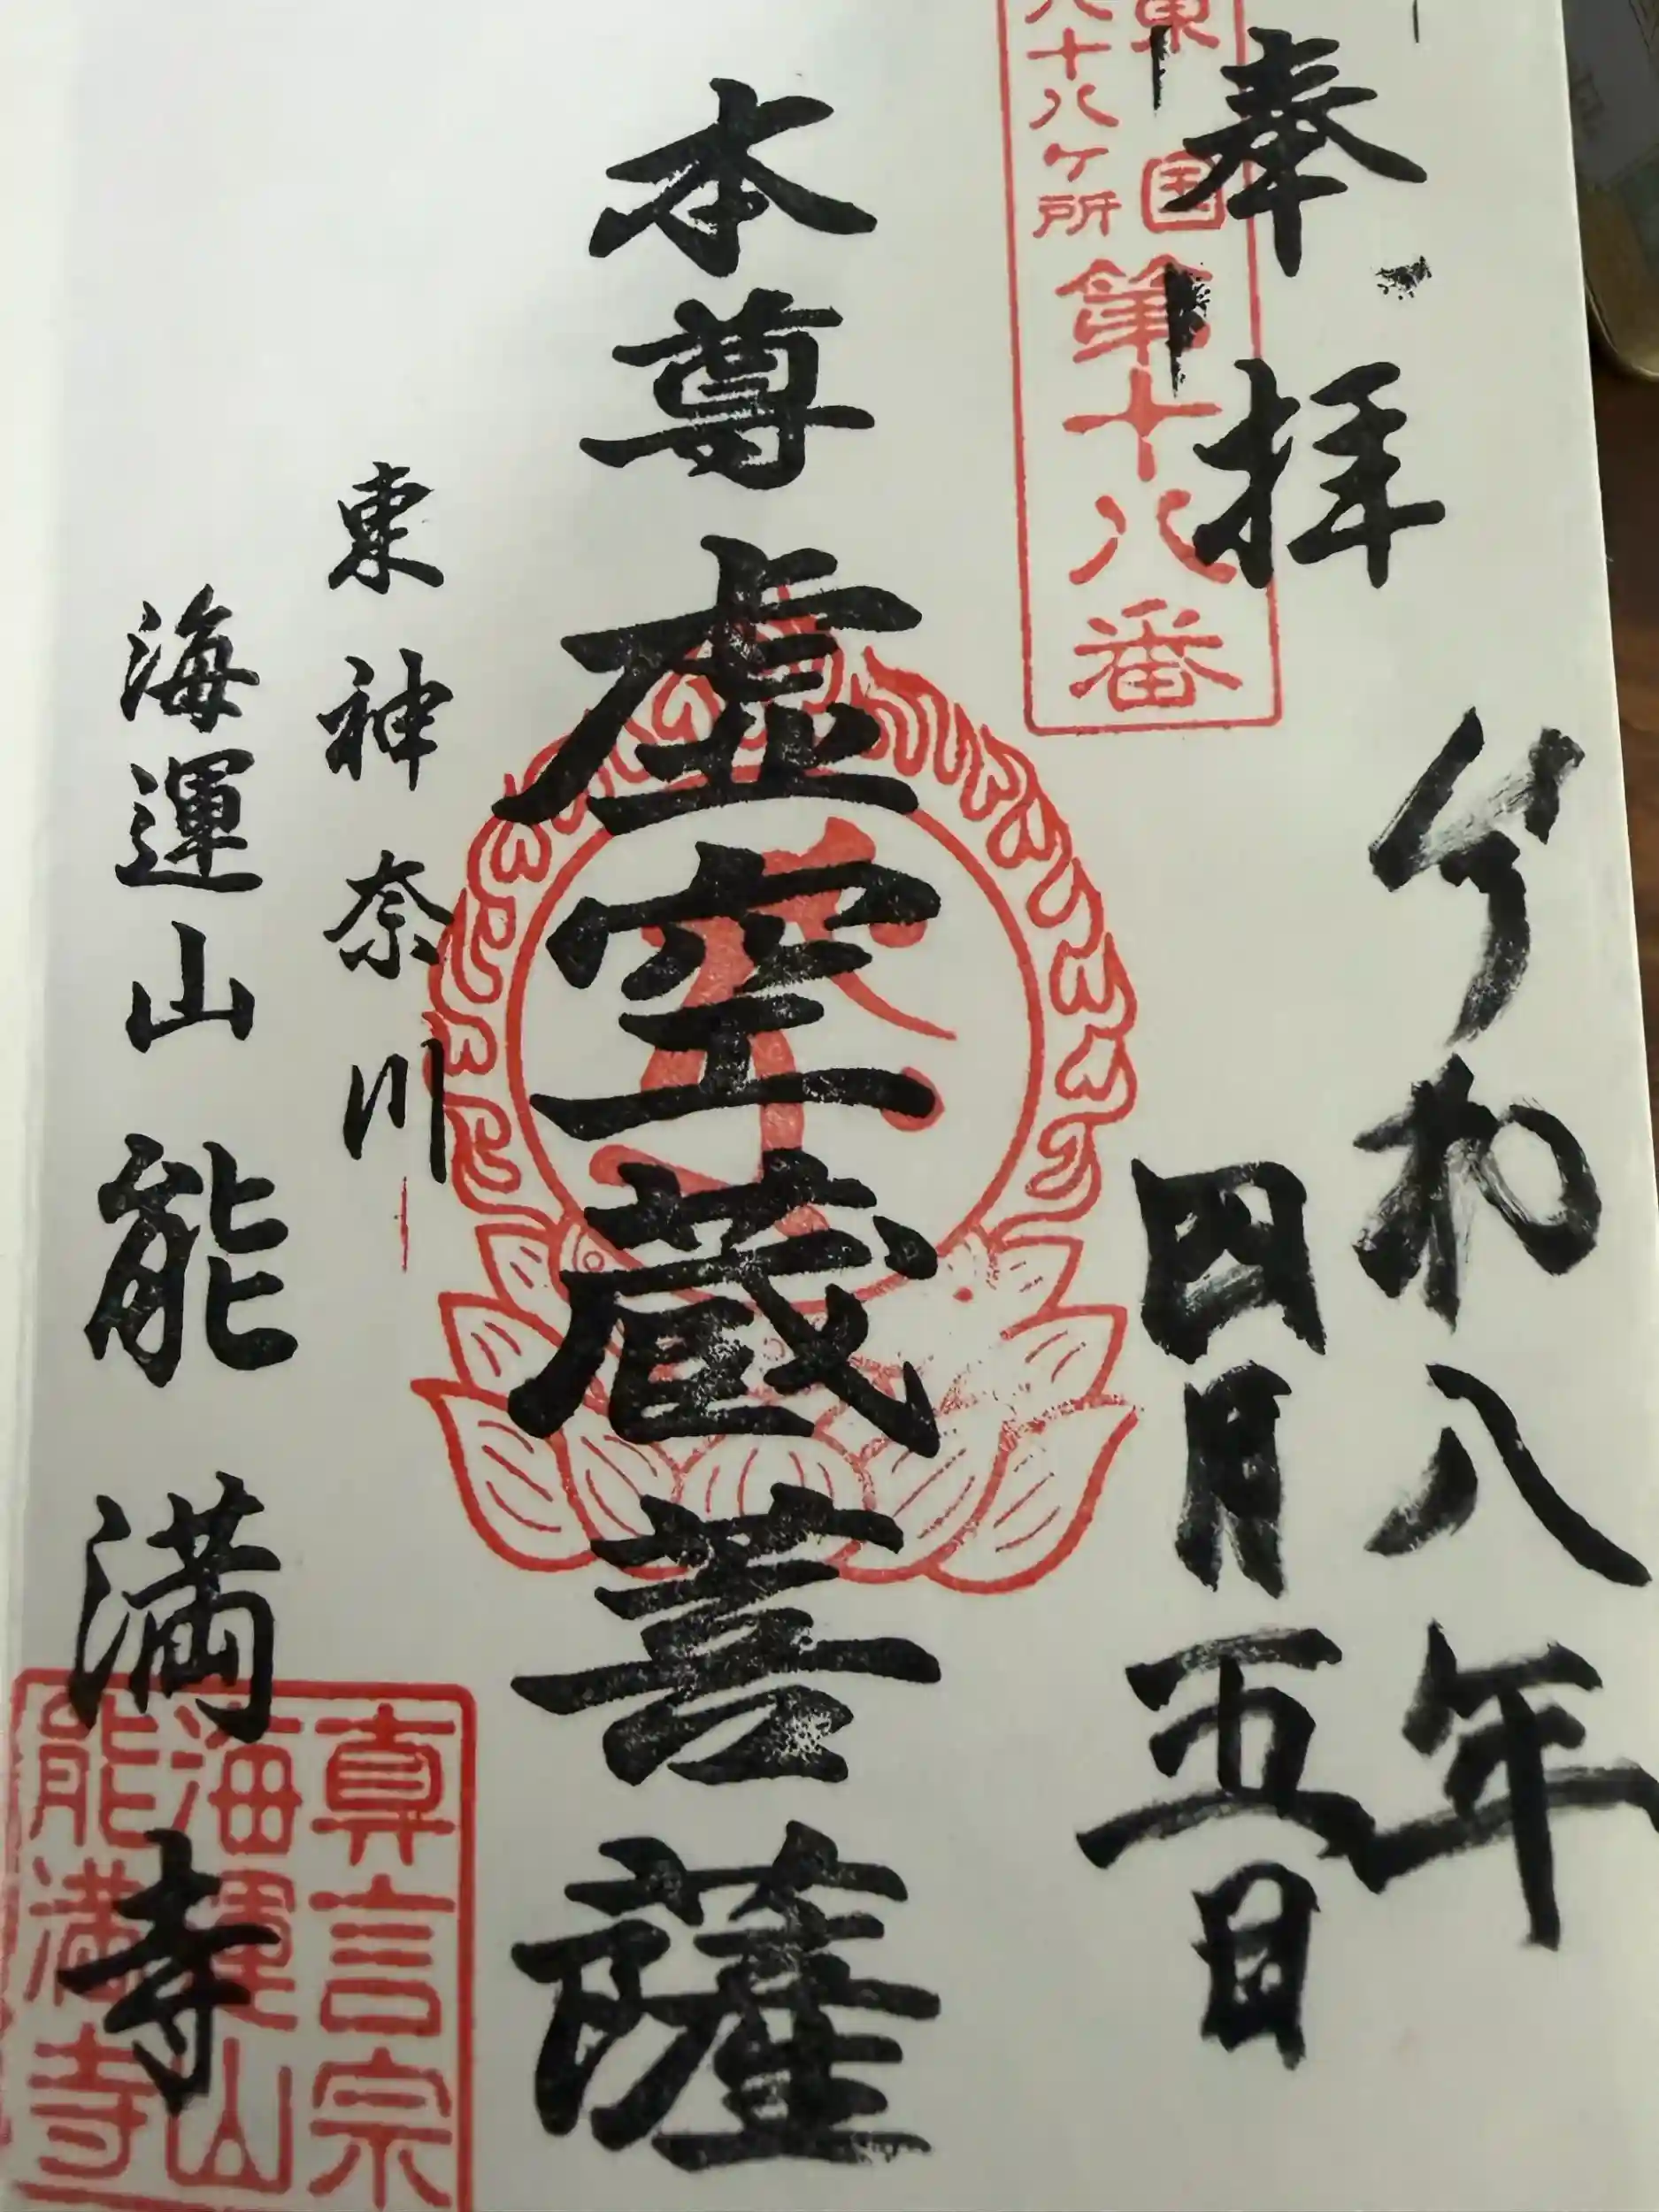 奉拝
令和八年
四月五日
東国
八十八ケ所
第十八番
本尊虚空蔵菩薩
東神奈川
海運山能満寺
真言宗
海運山
能満寺